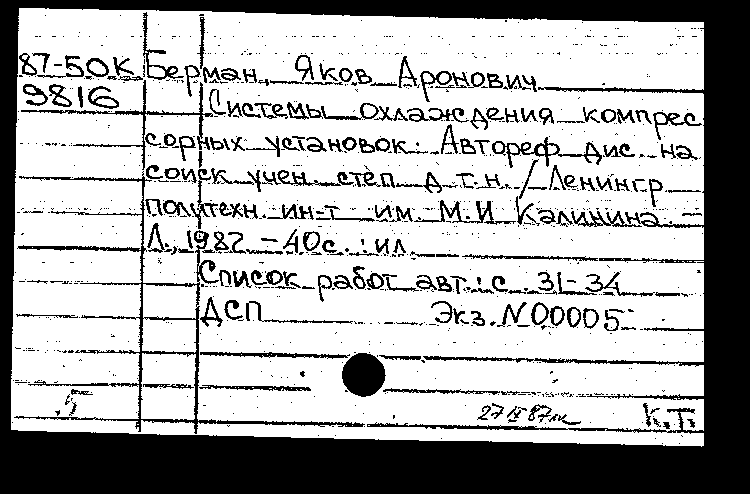 87-50К Берман, Яков Аронович
9816 Системы охлаждения компрес
сорных установок: Автореф дис. на
соиск учен. степ д.т.н. / Ленингр
политехн. ин-т им. М.И Калинина. –
Л., 1987. – 40с. : ил.
Список работ авт.: с. 31-34
ДСП Экз. N 00005
5 К.Т.